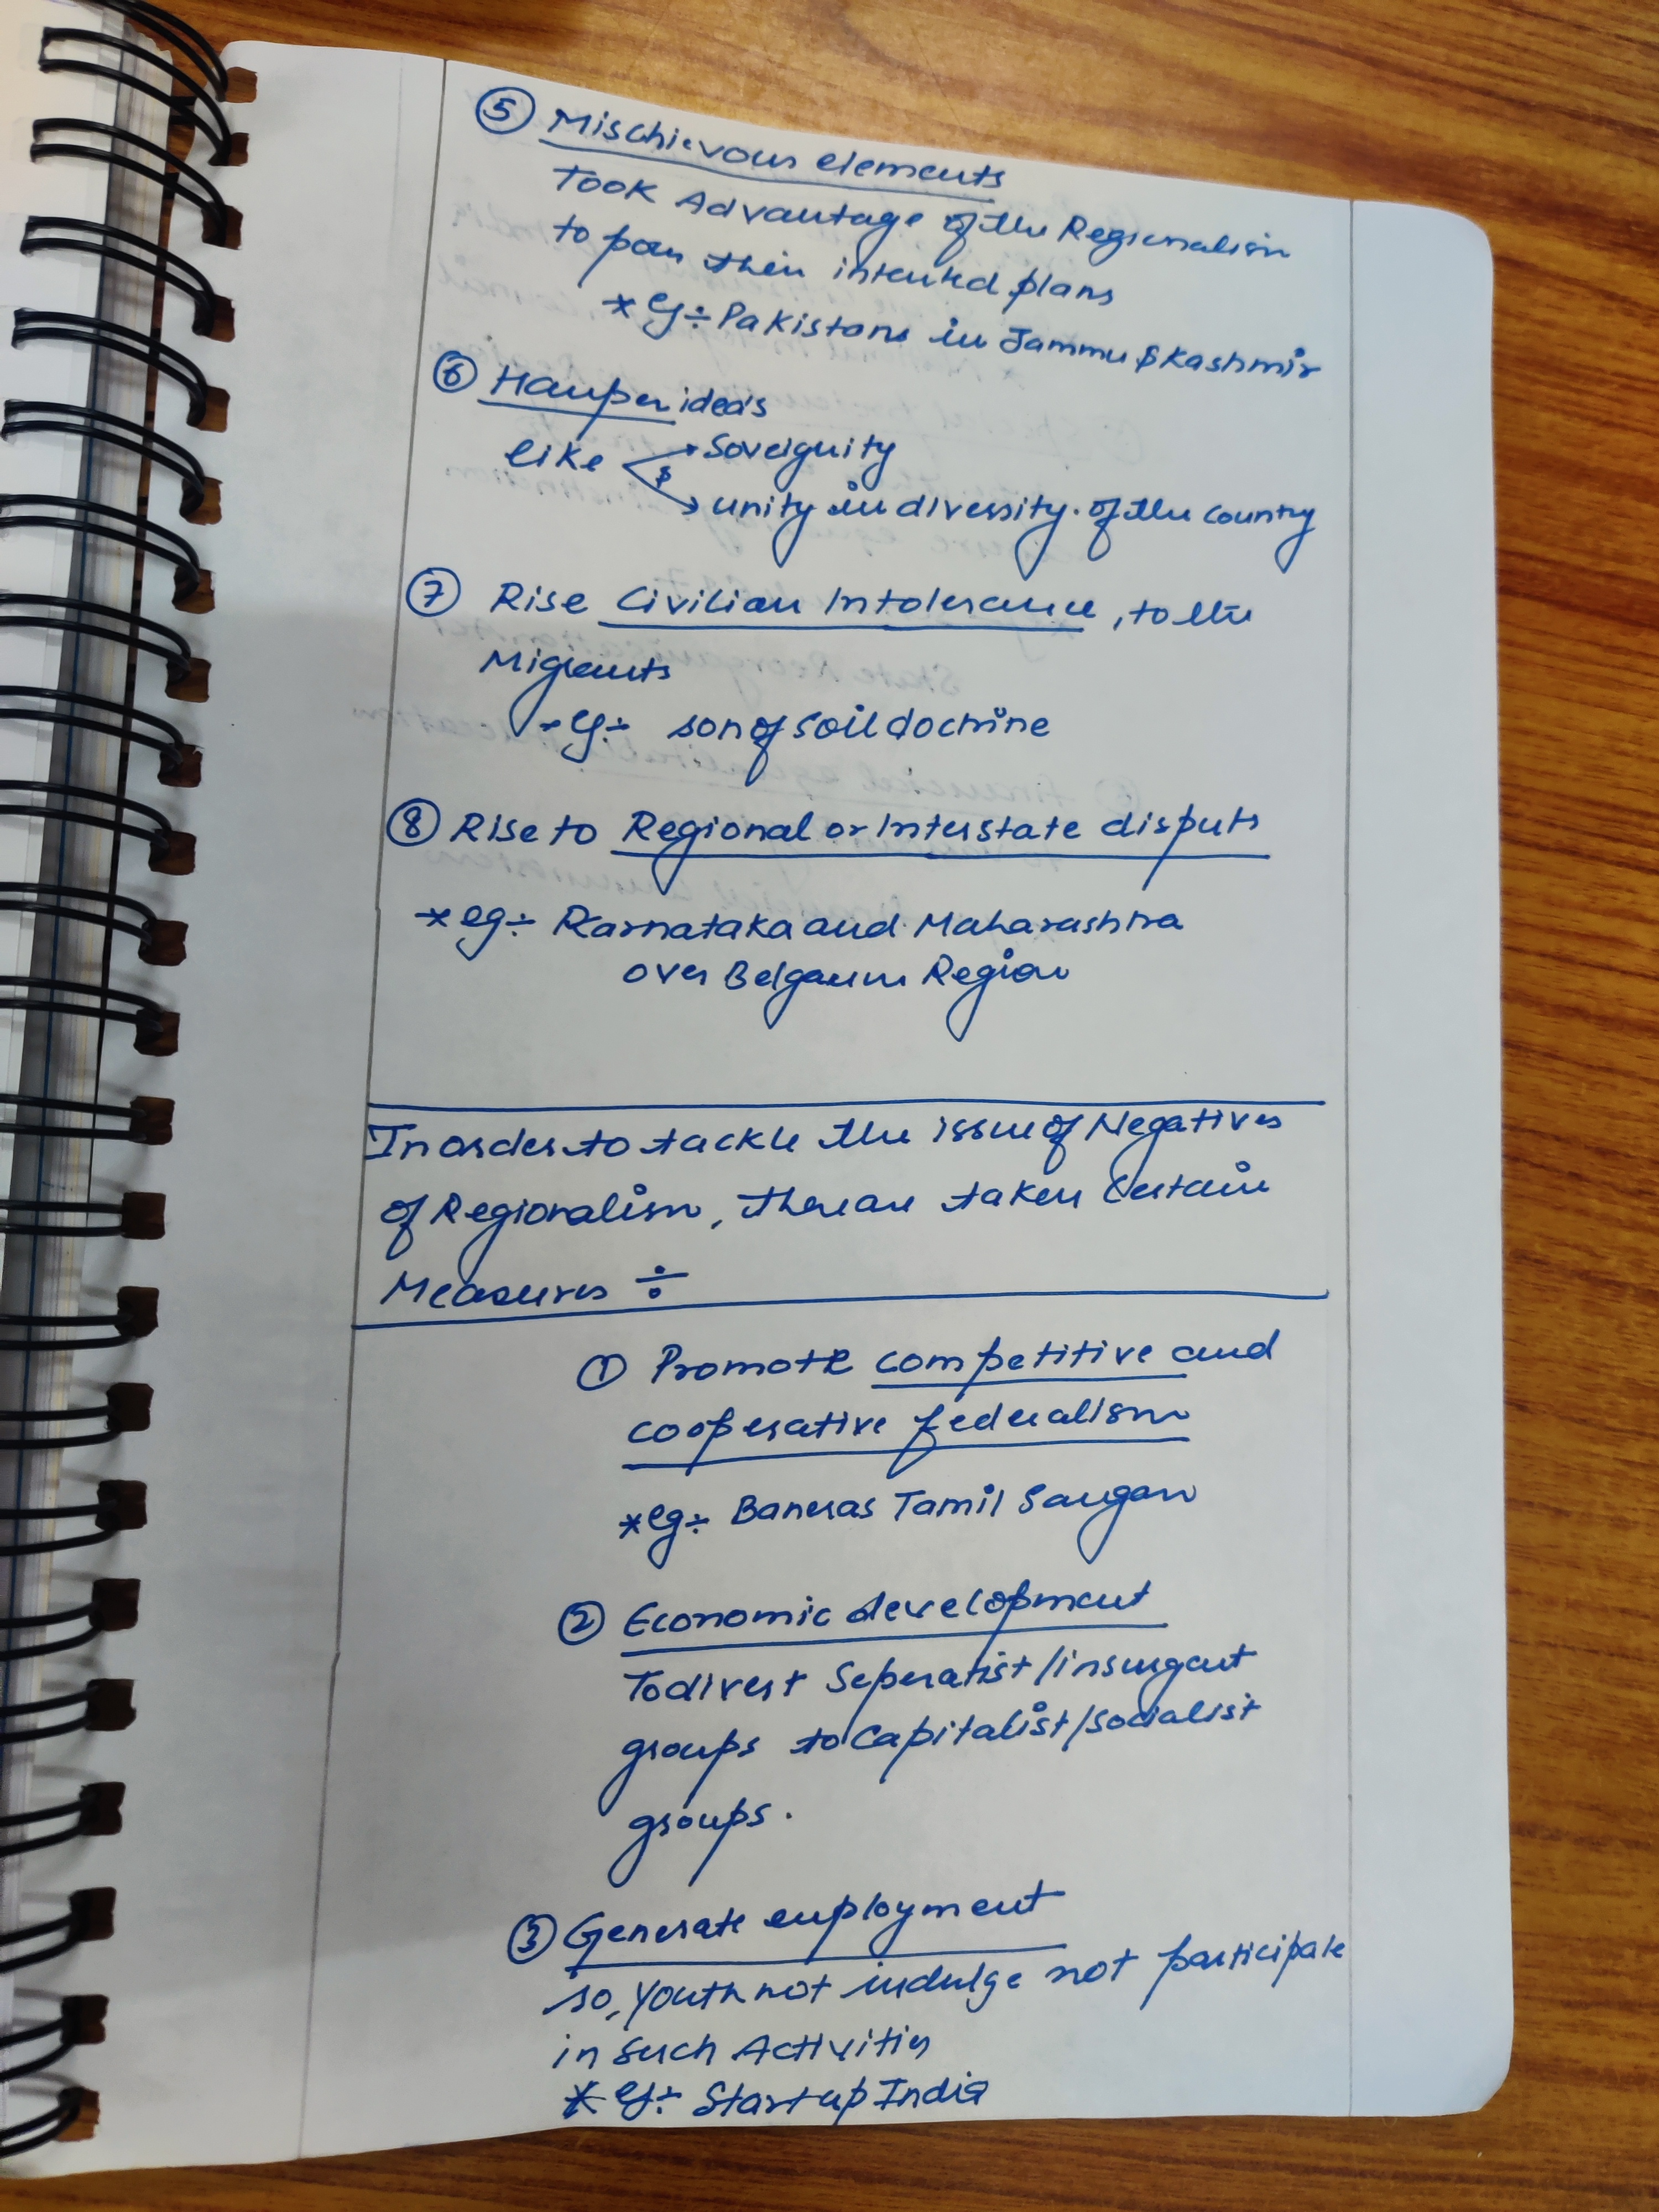 ⑤ Mischievous elements
Took Advantage of the Regionalism
to pass their intented plans
* eg÷ Pakistans in Jammu & Kashmir
⑥ Hamper idea's
like Soveignity
&
unity in diversity. of the country
⑦ Rise Civilian Intolerance, to the
Migrants
- eg÷ son of Soil doctrine
⑧ Rise to Regional or Interstate disputs
* eg÷ Karnataka and Maharashtra
over Belgaum Region
In order to tackle the issue of Negatives
of Regionalism, there are taken Certain
Measures ÷
① Promote competitive and
cooperative federalism
* eg÷ Baneras Tamil Sangam
② Economic development
To divert Seperatist/insurgent
groups to Capitalist/socialist
groups.
③ Generate employment
so, Youth not indulge not participate
in such Activities
* eg÷ Startup India